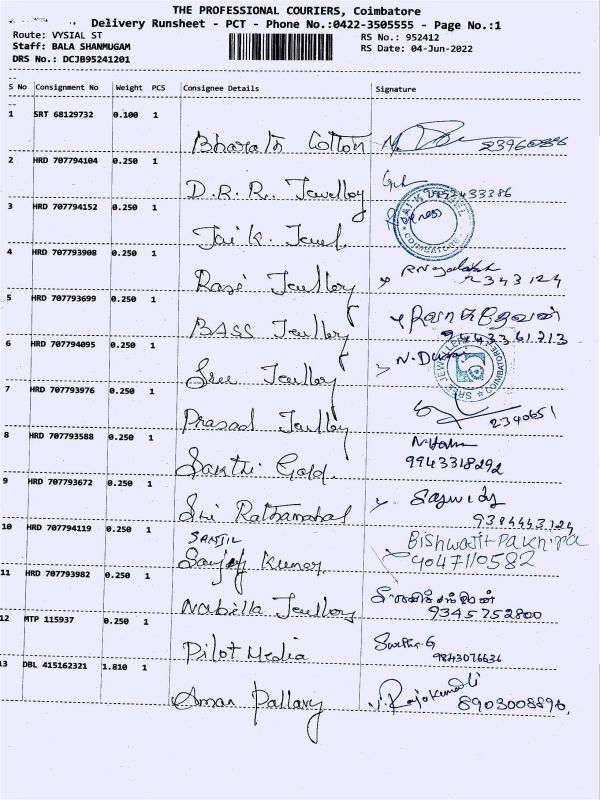 THE PROFESSIONAL COURIERS, Coimbatore
Delivery Runsheet - PCT - Phone No.:0422-3505555 - Page No.:1
Route: VYSIAL ST
RS No.: 952412
Staff: BALA SHANMUGAM
RS Date: 04-Jun-2022
DRS No.: DCJB95241201
S No Consignment No Weight PCS Consignee Details Signature
1 SRT 68129732 0.100 1
Bharath Cotton 23960896
2 HRD 707794104 0.250 1
D.R.R. Jewelloy
3 HRD 707794152 0.250 1
COIMBATORE
Jai k. Jewel
4 HRD 707793908 0.250 1
Rasi Jewlloy 2343124
5 HRD 707793699 0.250 1
BASS Jewlloy 9443361713
6 HRD 707794095 0.250 1
N. Durai
SREE JEWELLERY COIMBATORE
Sree Jewlloy
7 HRD 707793976 0.250 1
Prasad Jewlloy 2340651
8 HRD 707793588 0.250 1
Sakthi Gold. 9943318292
9 HRD 707793672 0.250 1
Sri Rathamahal 9384443124
10 HRD 707794119 0.250 1
SANJIL
Sanjoy Kumar
Bishwajit Pakhira
9047110582
11 HRD 707793982 0.250 1
Narbilla Jewlloy 9345752800
12 MTP 115937 0.250 1
Pilot Media
Swetha G
9843076636
13 DBL 415162321 1.810 1
Aman Pallavy
V. Rajakumali
8903008890